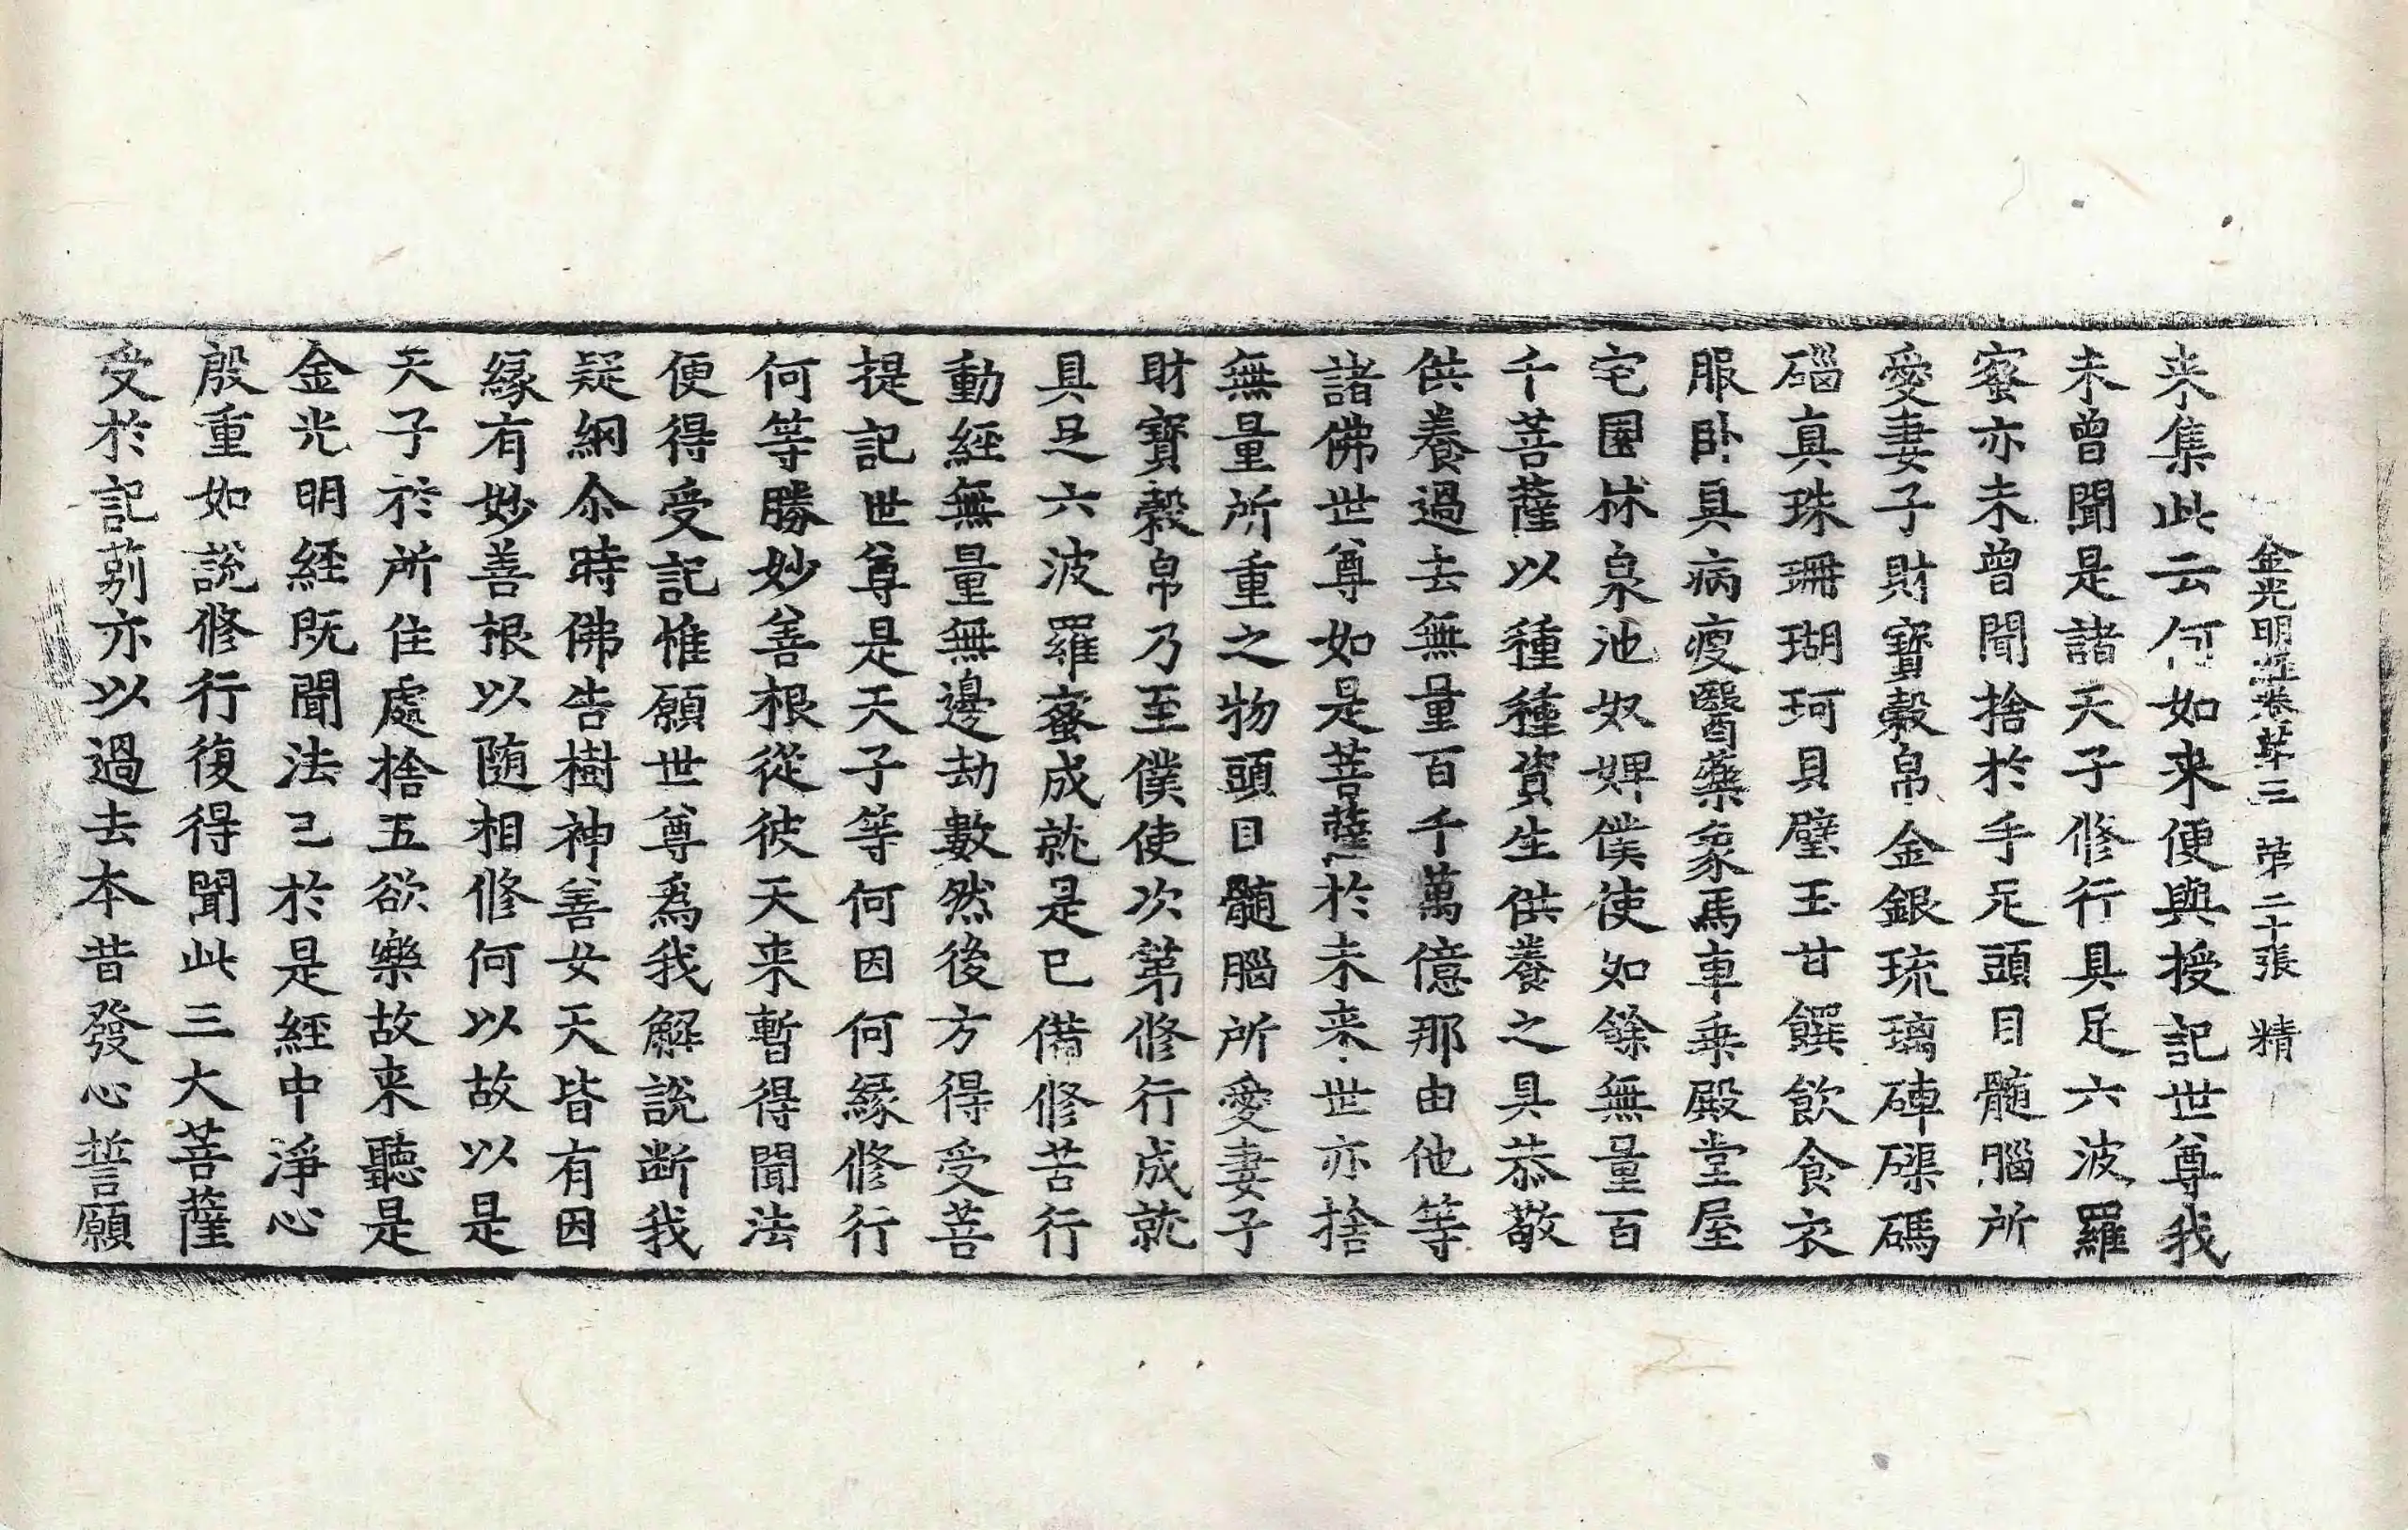 金光明經卷苐三　苐二十張　精
来集此云何如来便與授記世尊我
未曾聞是諸天子修行具足六波羅
蜜亦未曾聞捨於手足頭目髓腦所
愛妻子財寶穀帛金銀琉璃硨磲碼
碯真珠珊瑚珂貝璧玉甘饌飲食衣
服卧具病瘦醫藥象馬車乗殿堂屋
宅園林泉池奴婢僕使如餘無量百
千菩薩以種種資生供養之具恭敬
供養過去無量百千萬億那由他等
諸佛世尊如是菩薩於未来世亦捨
無量所重之物頭目髓腦所愛妻子
財寶穀帛乃至僕使次第修行成就
具足六波羅蜜成就是已備修苦行
動經無量無邊劫數然後方得受菩
提記世尊是天子等何因何緣修行
何等勝妙善根從彼天来暫得聞法
便得受記惟願世尊為我解說断我
疑網尒時佛告樹神善女天皆有因
緣有妙善根以随相修何以故以是
天子於所住處捨五欲樂故来聽是
金光明經既聞法已於是經中淨心
殷重如說修行復得聞此三大菩薩
受於記莂亦以過去本昔發心誓願